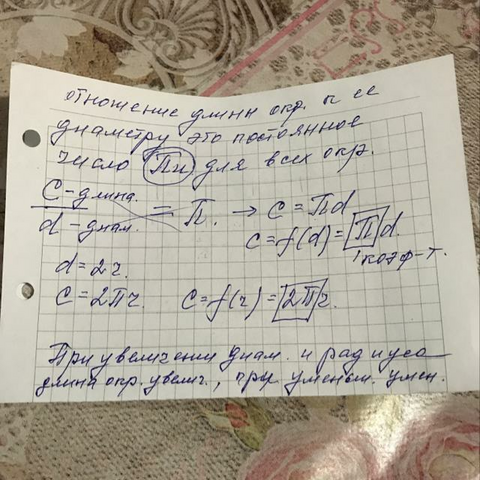 отношение длины окр. к ее
диаметру это постоянное
число Пи для всех окр.
C - длина. / d - диам. = П. → C = Пd
C = f(d) = П d.
коэф-т.
d = 2r.
C = 2Пr. C = f(r) = 2П r.
При увеличении диам. и радиуса
длина окр. увелич., при уменьш. умен.